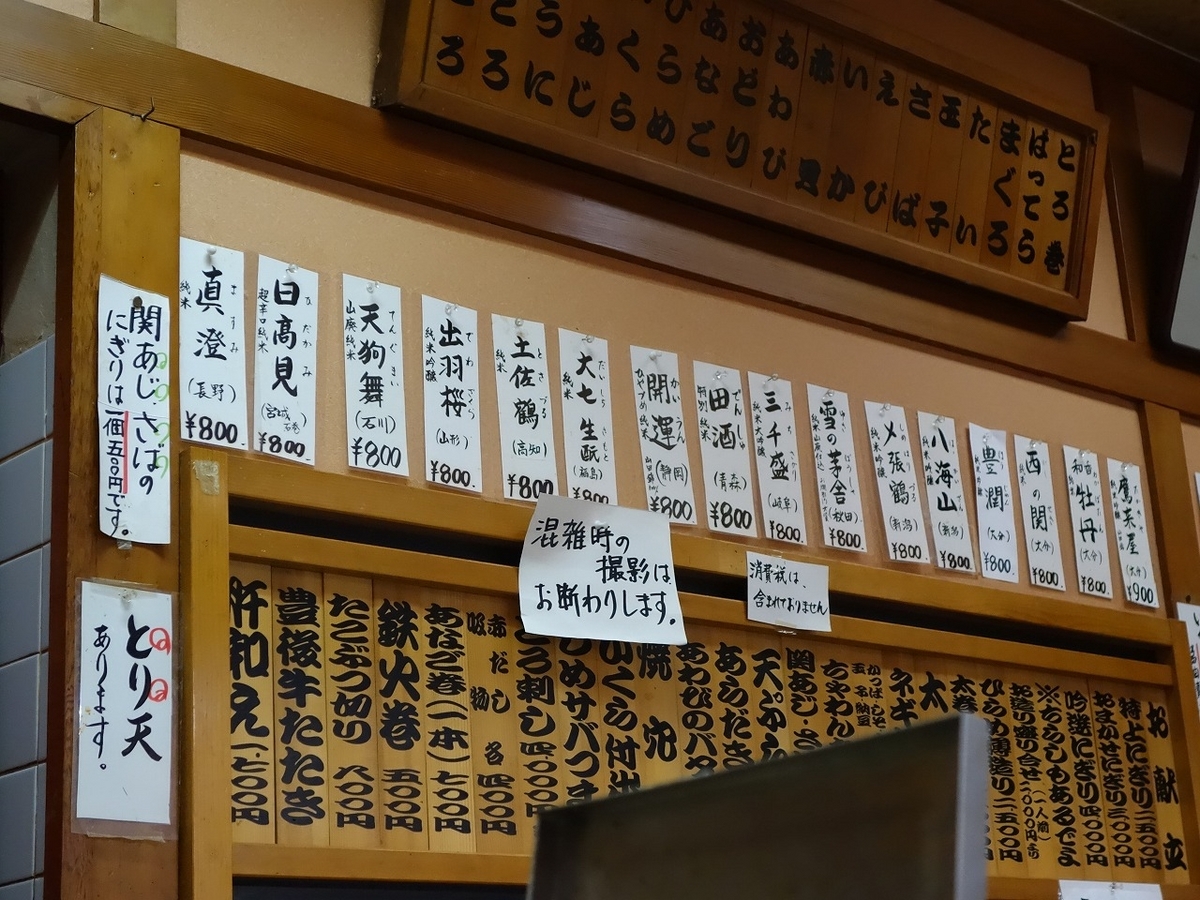 とろ巻
ばってら
まぐろ
たい
玉子
さば
えび
いか
赤貝
あわび
おどり
あなご
ひらめ
くら
あじ
うに
とろ
鷹来屋 (大分) ¥900
牡丹 純米 (大分) ¥800
西の関 (大分) ¥800.
豊潤 (大分) ¥800
八海山 はっかいさん 純米吟醸 (新潟) ¥800.
〆張鶴 しめはりづる 純米吟醸 (新潟) ¥800
雪の茅舎 ゆきのぼうしゃ (秋田) ¥800.
三千盛 みちさかり 純米大吟醸 (岐阜) ¥800.
田酒 でんしゅ 特別純米 (青森) ¥800
開運 かいうん ひやづめ純米 (静岡) ¥800
大七 生酛 だいしち きもと 純米 (福島) ¥800
土佐鶴 とさづる 純米 (高知) ¥800
出羽桜 でわざくら 純米吟醸 (山形) ¥800.
天狗舞 てんぐまい 山廃純米 (石川) ¥800
日高見 ひだかみ 超辛口純米 (宮城 石巻) ¥800
真澄 ますみ 純米 (長野) ¥800
関あじさばの
にぎりは一個五〇〇円です。
とり天
あります。
混雑時の
撮影は、
お断わりします。
消費税は、
含まれておりません
お献立
特上にぎり 二五〇〇円
おまかせにぎり 三〇〇〇円
吟選にぎり 四〇〇〇円
※ちらしもあるでよ
盛り合せ(一人前)二〇〇〇円より
ひらめ薄造り 二五〇〇円
太巻
太
ネギ
かっぱ しそ
玉 名 納豆
ちゃわん
関あじ・さ
天ぷら
あらだき
あわびのバ
焼 穴
いくら付出
しめサバつま
とろ刺し 四、〇〇〇円
赤だし 吸物 各四〇〇円
あなご巻(一本)七〇〇円
鉄火巻 五〇〇円
たこぶつ切り 八〇〇円
豊後牛たたき
肝和え 一、二〇〇円